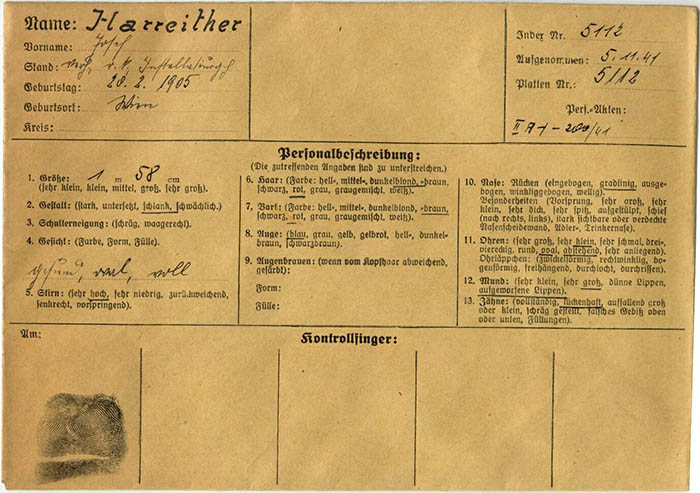 Name: Harreither
Vorname: Josef
Stand: verh.
Geburtstag: 28. 2. 1905
Geburtsort: Wien
Kreis:
Index Nr. 5112
Aufgenommen: 5.11.41
Platten Nr.: 5112
Pers.-Akten:
Personalbeschreibung:
(Die zutreffenden Angaben sind zu unterstreichen.)
1. Größe: 1 m 58 cm
(sehr klein, klein, mittel, groß, sehr groß).
2. Gestalt: (stark, untersetzt, schlank, schwächlich.)
3. Schulterneigung: (schräg, waagerecht).
4. Gesicht: (Farbe, Form, Fülle).
gesund, oval, voll
5. Stirn: (sehr hoch, sehr niedrig, zurückweichend,
senkrecht, vorspringend).
6. Haar: (Farbe: hell-, mittel-, dunkelblond, -braun,
schwarz, rot, grau, graugemischt, weiß).
7. Bart: (Farbe: hell-, mittel-, dunkelblond, -braun,
schwarz, rot, grau, graugemischt, weiß).
8. Auge: (blau, grau, gelb, gelbrot, hell-, dunkel-
braun, schwarzbraun).
9. Augenbrauen: (wenn vom Kopfhaar abweichend,
gefärbt):
Form:
Fülle:
10. Nase: Rücken (eingebogen, gradlinig, ausge-
bogen, winkliggebogen, wellig).
Besonderheiten (Vorsprung, sehr groß, sehr
klein, sehr dick, sehr spitz, aufgestülpt, schief
(nach rechts, links), stark sichtbare oder verdeckte
Nasenscheidewand, Adler-, Trinkernase).
11. Ohren: (sehr groß, sehr klein, sehr schmal, drei-,
viereckig, rund, oval, abstehend, sehr anliegend).
Ohrläppchen: (zwickelförmig, rechtwinklig, bo-
genförmig, freihängend, durchlocht, durchrissen).
12. Mund: (sehr klein, sehr groß, dünne Lippen,
aufgeworfene Lippen).
13. Zähne: (vollständig, lückenhaft, auffallend groß
oder klein, schräg gestellt, falsches Gebiß oben
oder unten, Füllungen).
Am:
Kontrollfinger: